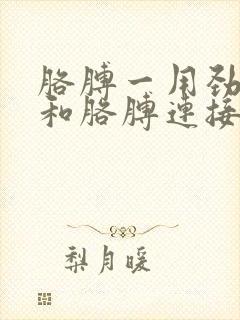 胳膊一用劲
和胳膊连接
梨月暖